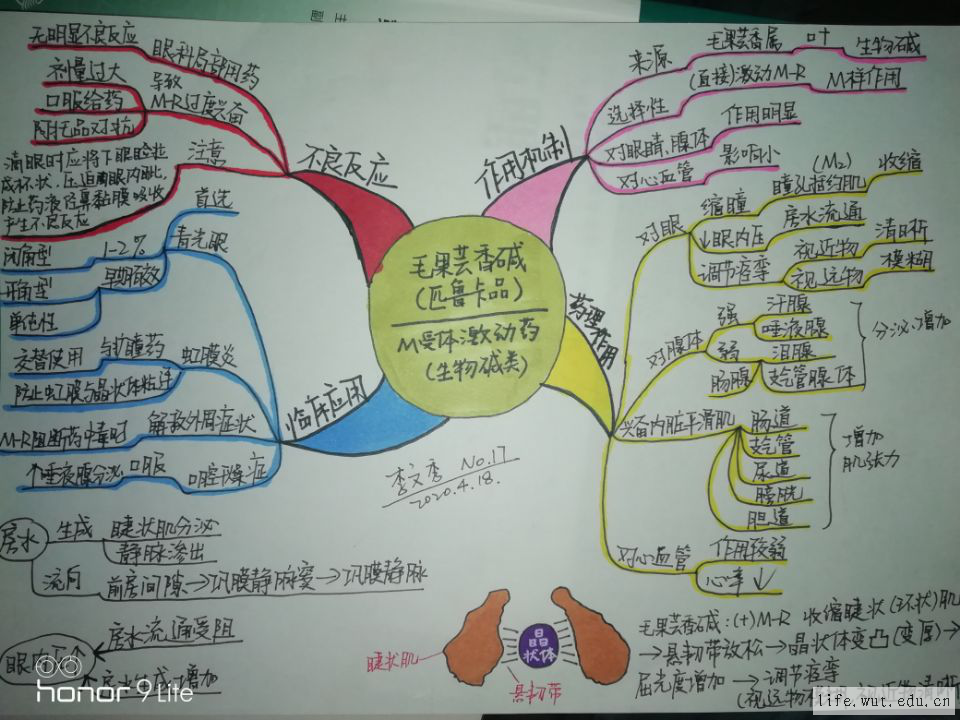 毛果芸香碱
(匹鲁卡品)
M受体激动药
(生物碱类)
李文秀 No.17
2020.4.18.
不良反应
眼科局部用药
无明显不良反应
导致
M-R过度兴奋
剂量过大
口服给药
阿托品对抗
注意
滴眼时应将下眼睑拉
成杯状,压迫内眦,
防止药液
鼻黏膜吸收
产生不良反应
作用机制
来源
毛果芸香属
叶
生物碱
选择性
(直接)激动M-R
M样作用
对眼睛、腺体
作用明显
对心血管
影响小
药理作用
对眼
缩瞳
瞳孔括约肌
(M₂)
收缩
↓眼内压
房水流通
调节痉挛
视近物
清晰
视远物
模糊
对腺体
强
汗腺
唾液腺
弱
泪腺
肠腺
支气管腺体
分泌增加
兴奋内脏平滑肌
肠道
支气管
尿道
膀胱
胆道
增加
肌张力
对心血管
作用较弱
心率↓
临床应用
青光眼
首选
闭角型
1-2%
开角型
早期有效
单纯性
虹膜炎
与扩瞳药
交替使用
防止虹膜与晶状体粘连
解救外周症状
M-R阻断药中毒时
口腔干燥症
口服
↑唾液腺分泌
房水
生成
睫状肌分泌
静脉渗出
流向
前房间隙→巩膜静脉窦→巩膜静脉
房水流通受阻
增加
睫状肌
晶
状体
悬韧带
毛果芸香碱:(+)M-R 收缩睫状(环状)肌
→悬韧带放松→晶状体变凸(变厚)→
屈光度增加→调节痉挛
(视远物
honor 9 Lite
life.wut.edu.cn